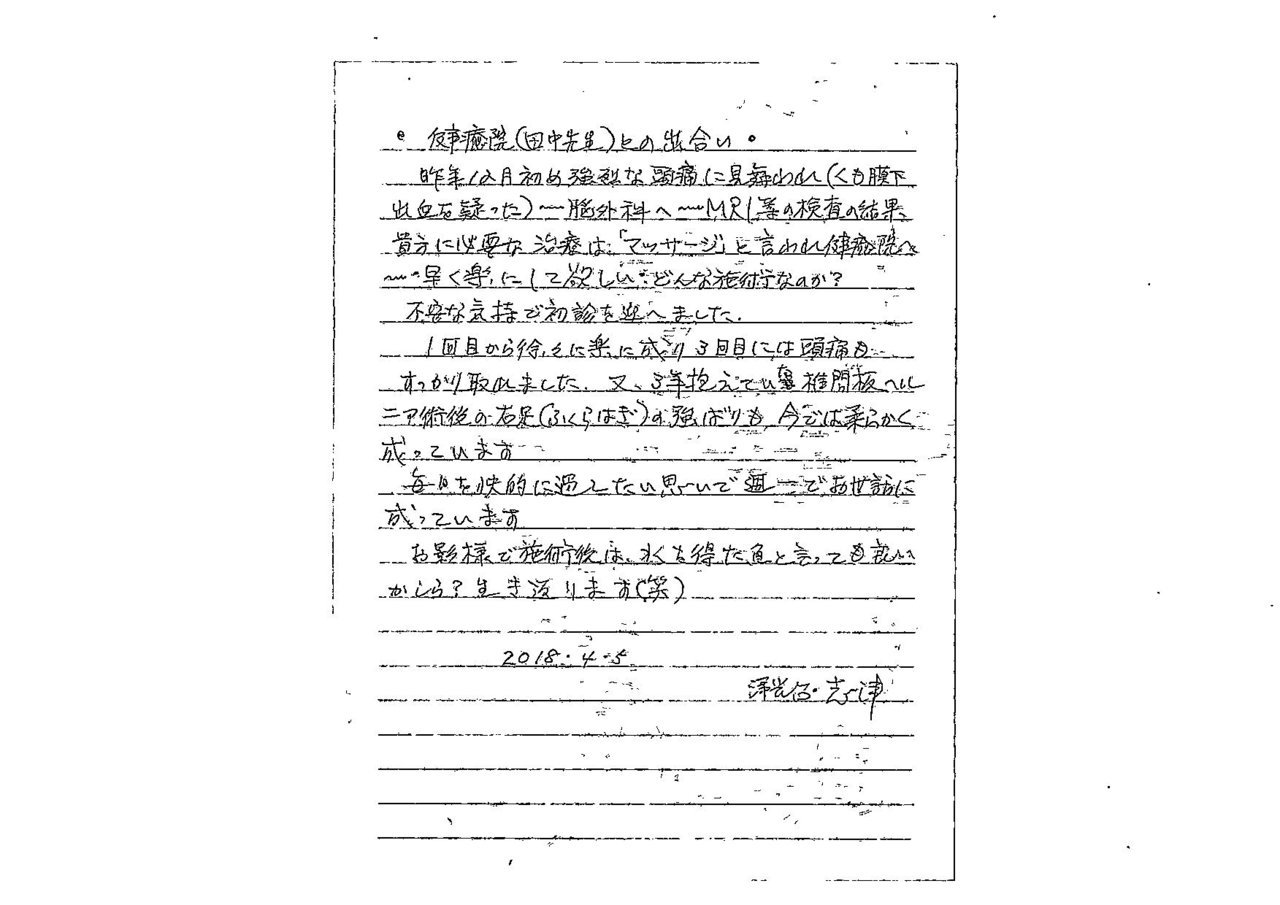 。健療院(田中先生)との出合い。
昨年12月初め強烈な頭痛に見舞われ(くも膜下
出血を疑った)〜脳外科へ〜MRI等の検査の結果、
貴方に必要な治療は「マッサージ」と言われ健療院へ
〜早く楽にして欲しい…どんな施術なのか?
不安な気持で初診を迎へました.
1回目から徐々に楽に成り3回目には頭痛も
すっかり取れました. 又、3年抱えている 椎間板ヘル
ニア術後の右足(ふくらはぎ)の強ばりも、今では柔らかく
成っています
毎日を快的に過したい思いで週一でお世話に
成っています
お影様で施術後は、水を得た魚と言っても良い
かしら?生き返ります(笑)
2018.4.5
志津